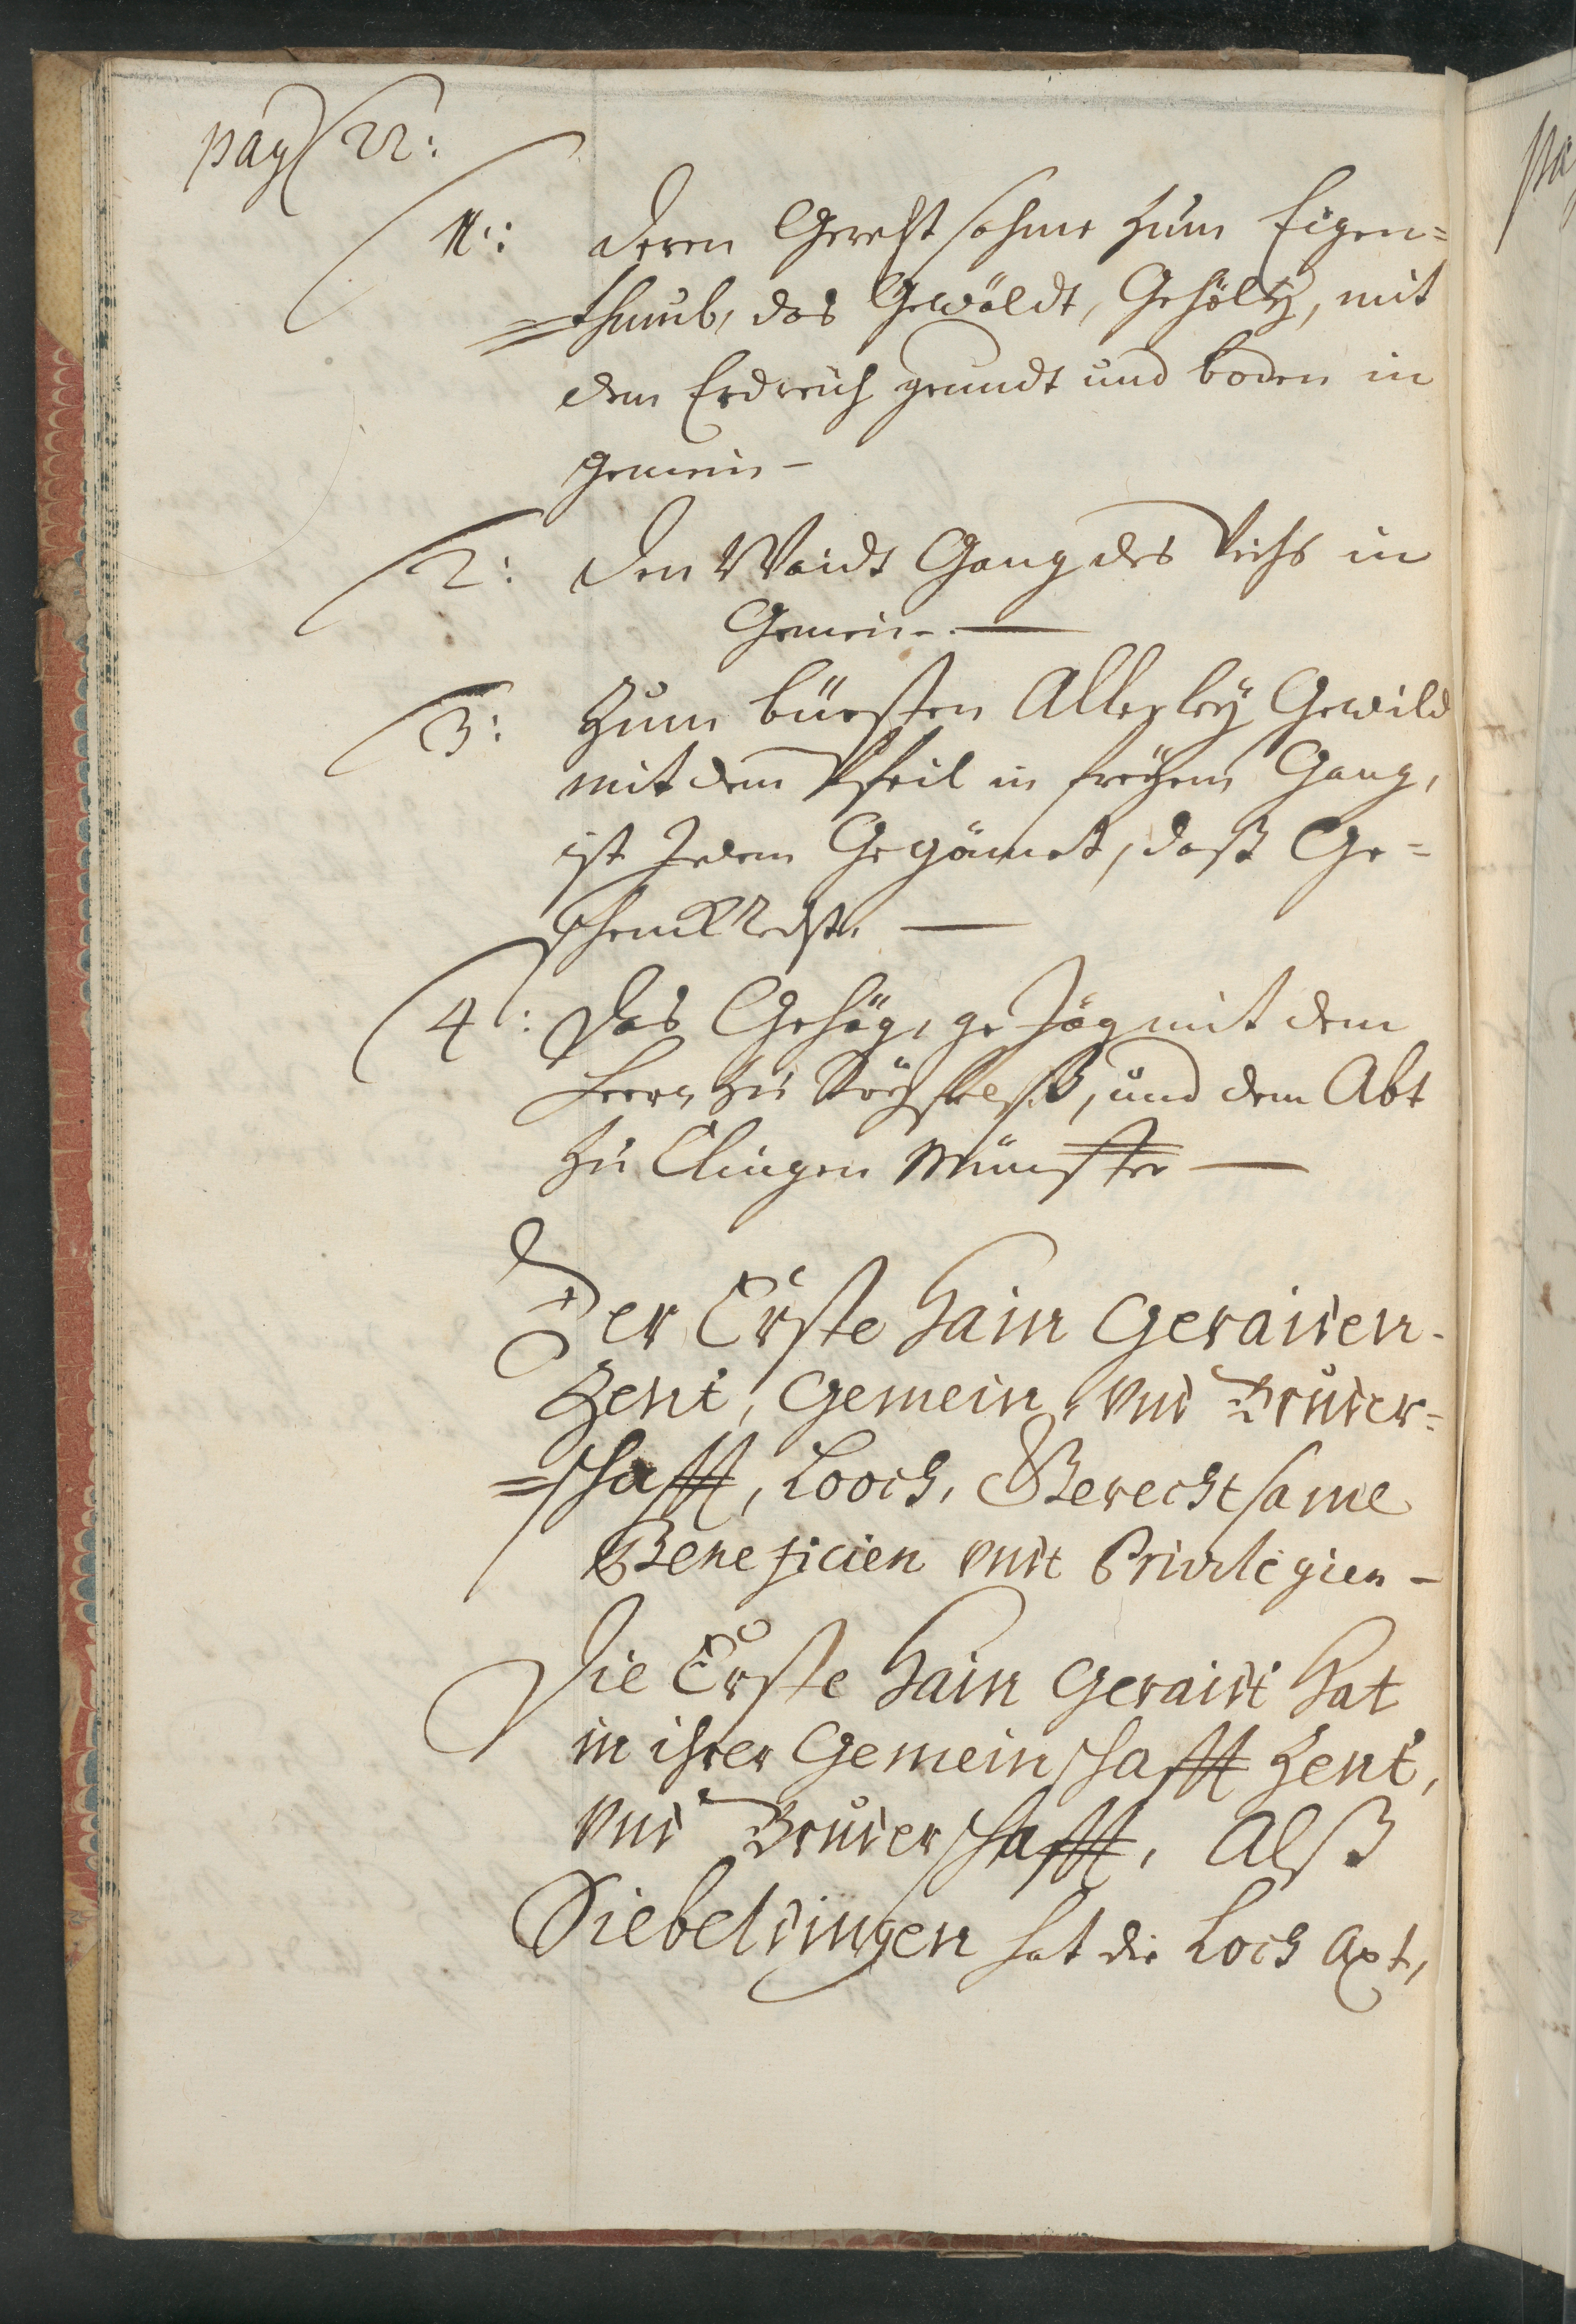 pag 22:
1: deren Gerechtsahme zum Eigen=
=thumb, das Gewäldt, Gehöltz, mit
dem Erdreich grundt und boden in
gemein –
2: den Waidt Gang des Viehs in
Gemein. —
3: Zum bürsten Allerley Gewild
mit dem Pfeil in freyem Gang,
ist Jedem Gegönnet, daß Ge=
—
4: das Gehäg, ge Jäg mit dem
Herrn zu, und dem Abt
zu Clingen Münster —
Der Erste Hain Geraiden-
Zent, Gemein, vnd Bruder=
=schafft, Looch, Gerechtsame
Beneficien vndt Privilegien –
Die Erste Hain Geraidt hat
in ihrer Gemeinschafft Zent,
vnd Bruderschafft, Alß
Siebeldingen hat die Loch Axt,